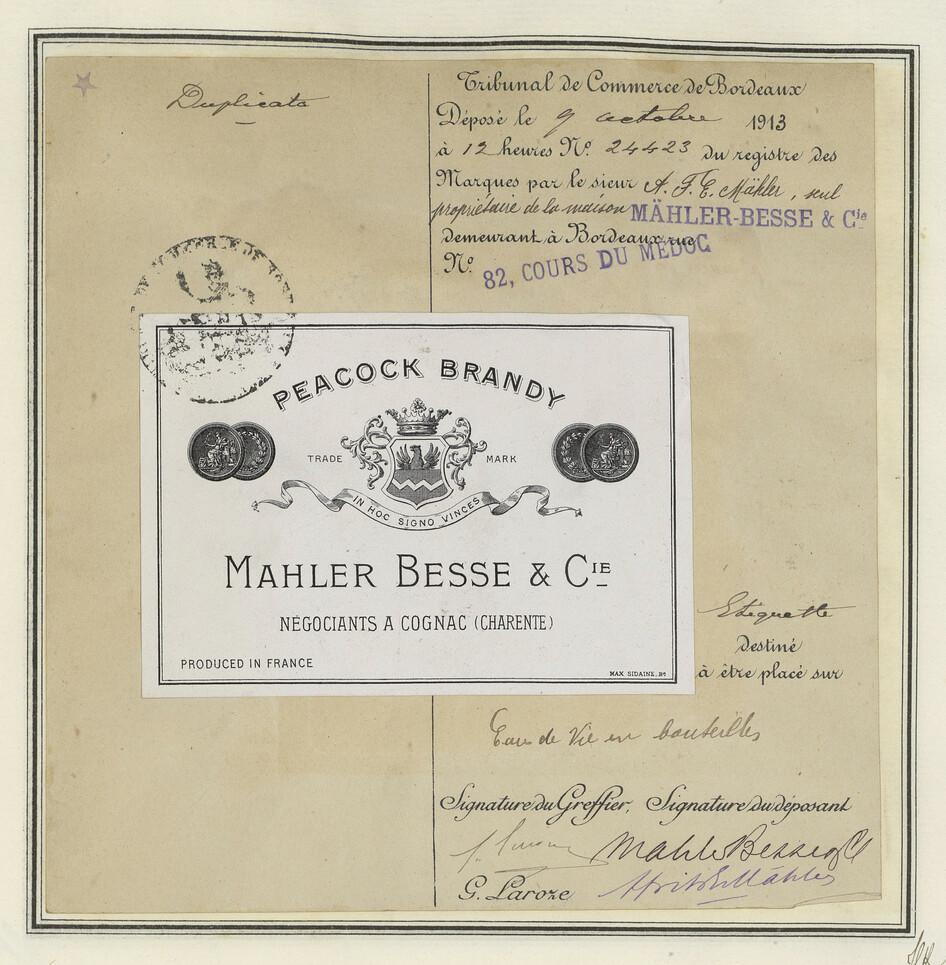 Duplicata
Tribunal de Commerce de Bordeaux
Déposé le 9 octobre 1913
à 12 heures Nº 24423 du registre des
Marques par le sieur A. F. E. Mähler, seul
propriétaire de la maison MÄHLER-BESSE & Cie
demeurant à Bordeaux rue
Nº 82, COURS DU MÉDOC
PEACOCK BRANDY
TRADE MARK
IN HOC SIGNO VINCES
MAHLER BESSE & CIE
NÉGOCIANTS A COGNAC (CHARENTE)
PRODUCED IN FRANCE
MAX SIDAINE, Bx
Etiquette
destiné
à être placé sur
Eaux de Vie en bouteilles
Signature du Greffier, Signature du déposant
Mahler Besse & Cie
G. Laroze